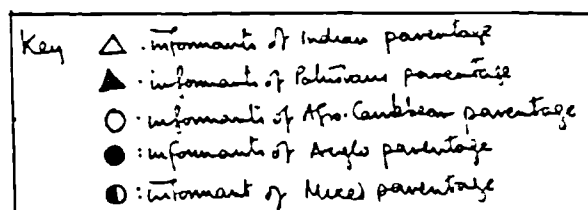 Key △ : informants of Indian parentage
▲ : informants of Pakistani parentage
○ : informants of Afro-Caribbean parentage
● : informants of Anglo parentage
◐ : informant of Mixed parentage